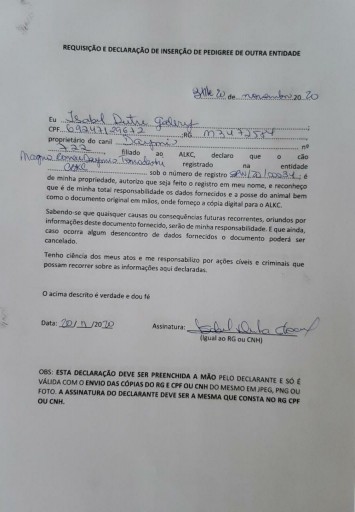 REQUISIÇÃO E DECLARAÇÃO DE INSERÇÃO DE PEDIGREE DE OUTRA ENTIDADE
20 de novembro 20 20
Eu Isabel Dutra
CPF 69247129672 RG M3472584
proprietário do canil nº
722 filiado ao ALKC, declaro que o cão
registrado na entidade
sob o número de registro é
de minha propriedade, autorizo que seja feito o registro em meu nome, e reconheço
que é de minha total responsabilidade os dados fornecidos e a posse do animal bem
como o documento original em mãos, onde forneço a cópia digital para o ALKC.
Sabendo-se que quaisquer causas ou consequências futuras recorrentes, oriundos por
informações deste documento fornecido, serão de minha responsabilidade. E que ainda,
caso ocorra algum desencontro de dados fornecidos o documento poderá ser
cancelado.
Tenho ciência dos meus atos e me responsabilizo por ações cíveis e criminais que
possam recorrer sobre as informações aqui declaradas.
O acima descrito é verdade e dou fé
Data: 20/11/2020 Assinatura: Isabel Dutra
(Igual ao RG ou CNH)
OBS: ESTA DECLARAÇÃO DEVE SER PREENCHIDA A MÃO PELO DECLARANTE E SÓ É
VÁLIDA COM O ENVIO DAS CÓPIAS DO RG E CPF OU CNH DO MESMO EM JPEG, PNG OU
FOTO. A ASSINATURA DO DECLARANTE DEVE SER A MESMA QUE CONSTA NO RG CPF
OU CNH.